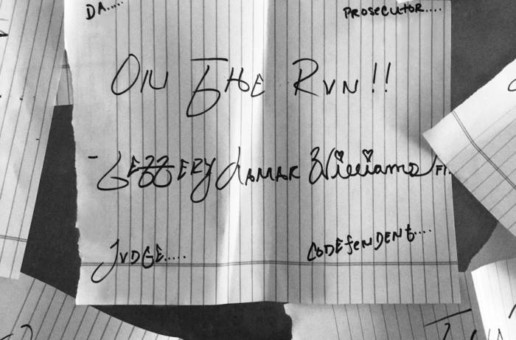 DA.... PROSECUTOR....
ON THE RUN!!
- JEZZEEZY LAMAR Williams
JUDGE..... CODEfENDENt....